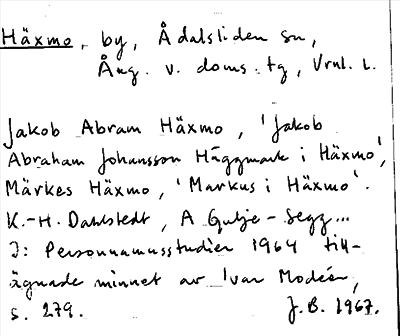 Häxmo, by, Ådalsliden sn,
Ång. v. doms. tg, Vrnl. L.
Jakob Abram Häxmo, 'Jakob
Abraham Johansson Häggmark i Häxmo',
Märkes Häxmo, 'Markus i Häxmo'.
K.-H. Dahlstedt, A Gulje-Segg...
I: Personnamnsstudier 1964 till-
ägnade minnet av Ivar Modéer,
s. 279. J.B. 1967.